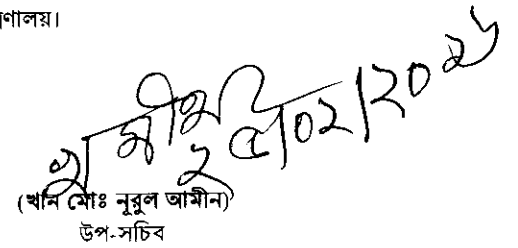 ণালয়।
২৫/০২/২০১৬
(খান মোঃ নূরুল আমীন)
উপ-সচিব